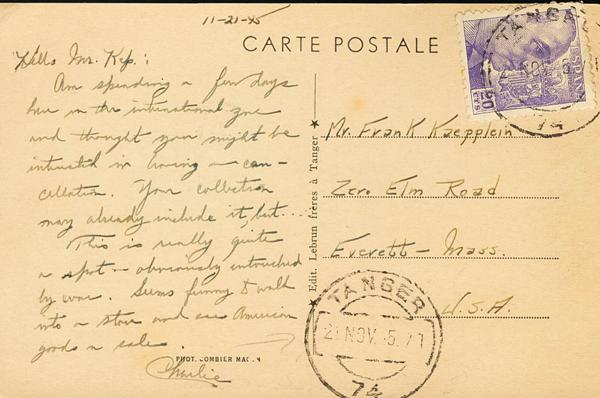 11-21-45
CARTE POSTALE
"Hello Mr. Kep.:
Am spending a few days
here in the international zone
and thought you might be
interested in having a can-
cellation. Your collection
may already include it, but....
This is really quite
a spot - obviously untouched
by war. Seems funny to walk
into a store and see American
goods on sale.
Charlie
PHOT. COMBIER MACON
Edit. Lebrun frères à Tanger
Mr. Frank Kaepplein
Zero Elm Road
Everett - Mass.
U.S.A.
TANGER
21 NOV. 5. 71
74
TANGE
NOV. 5
74
50